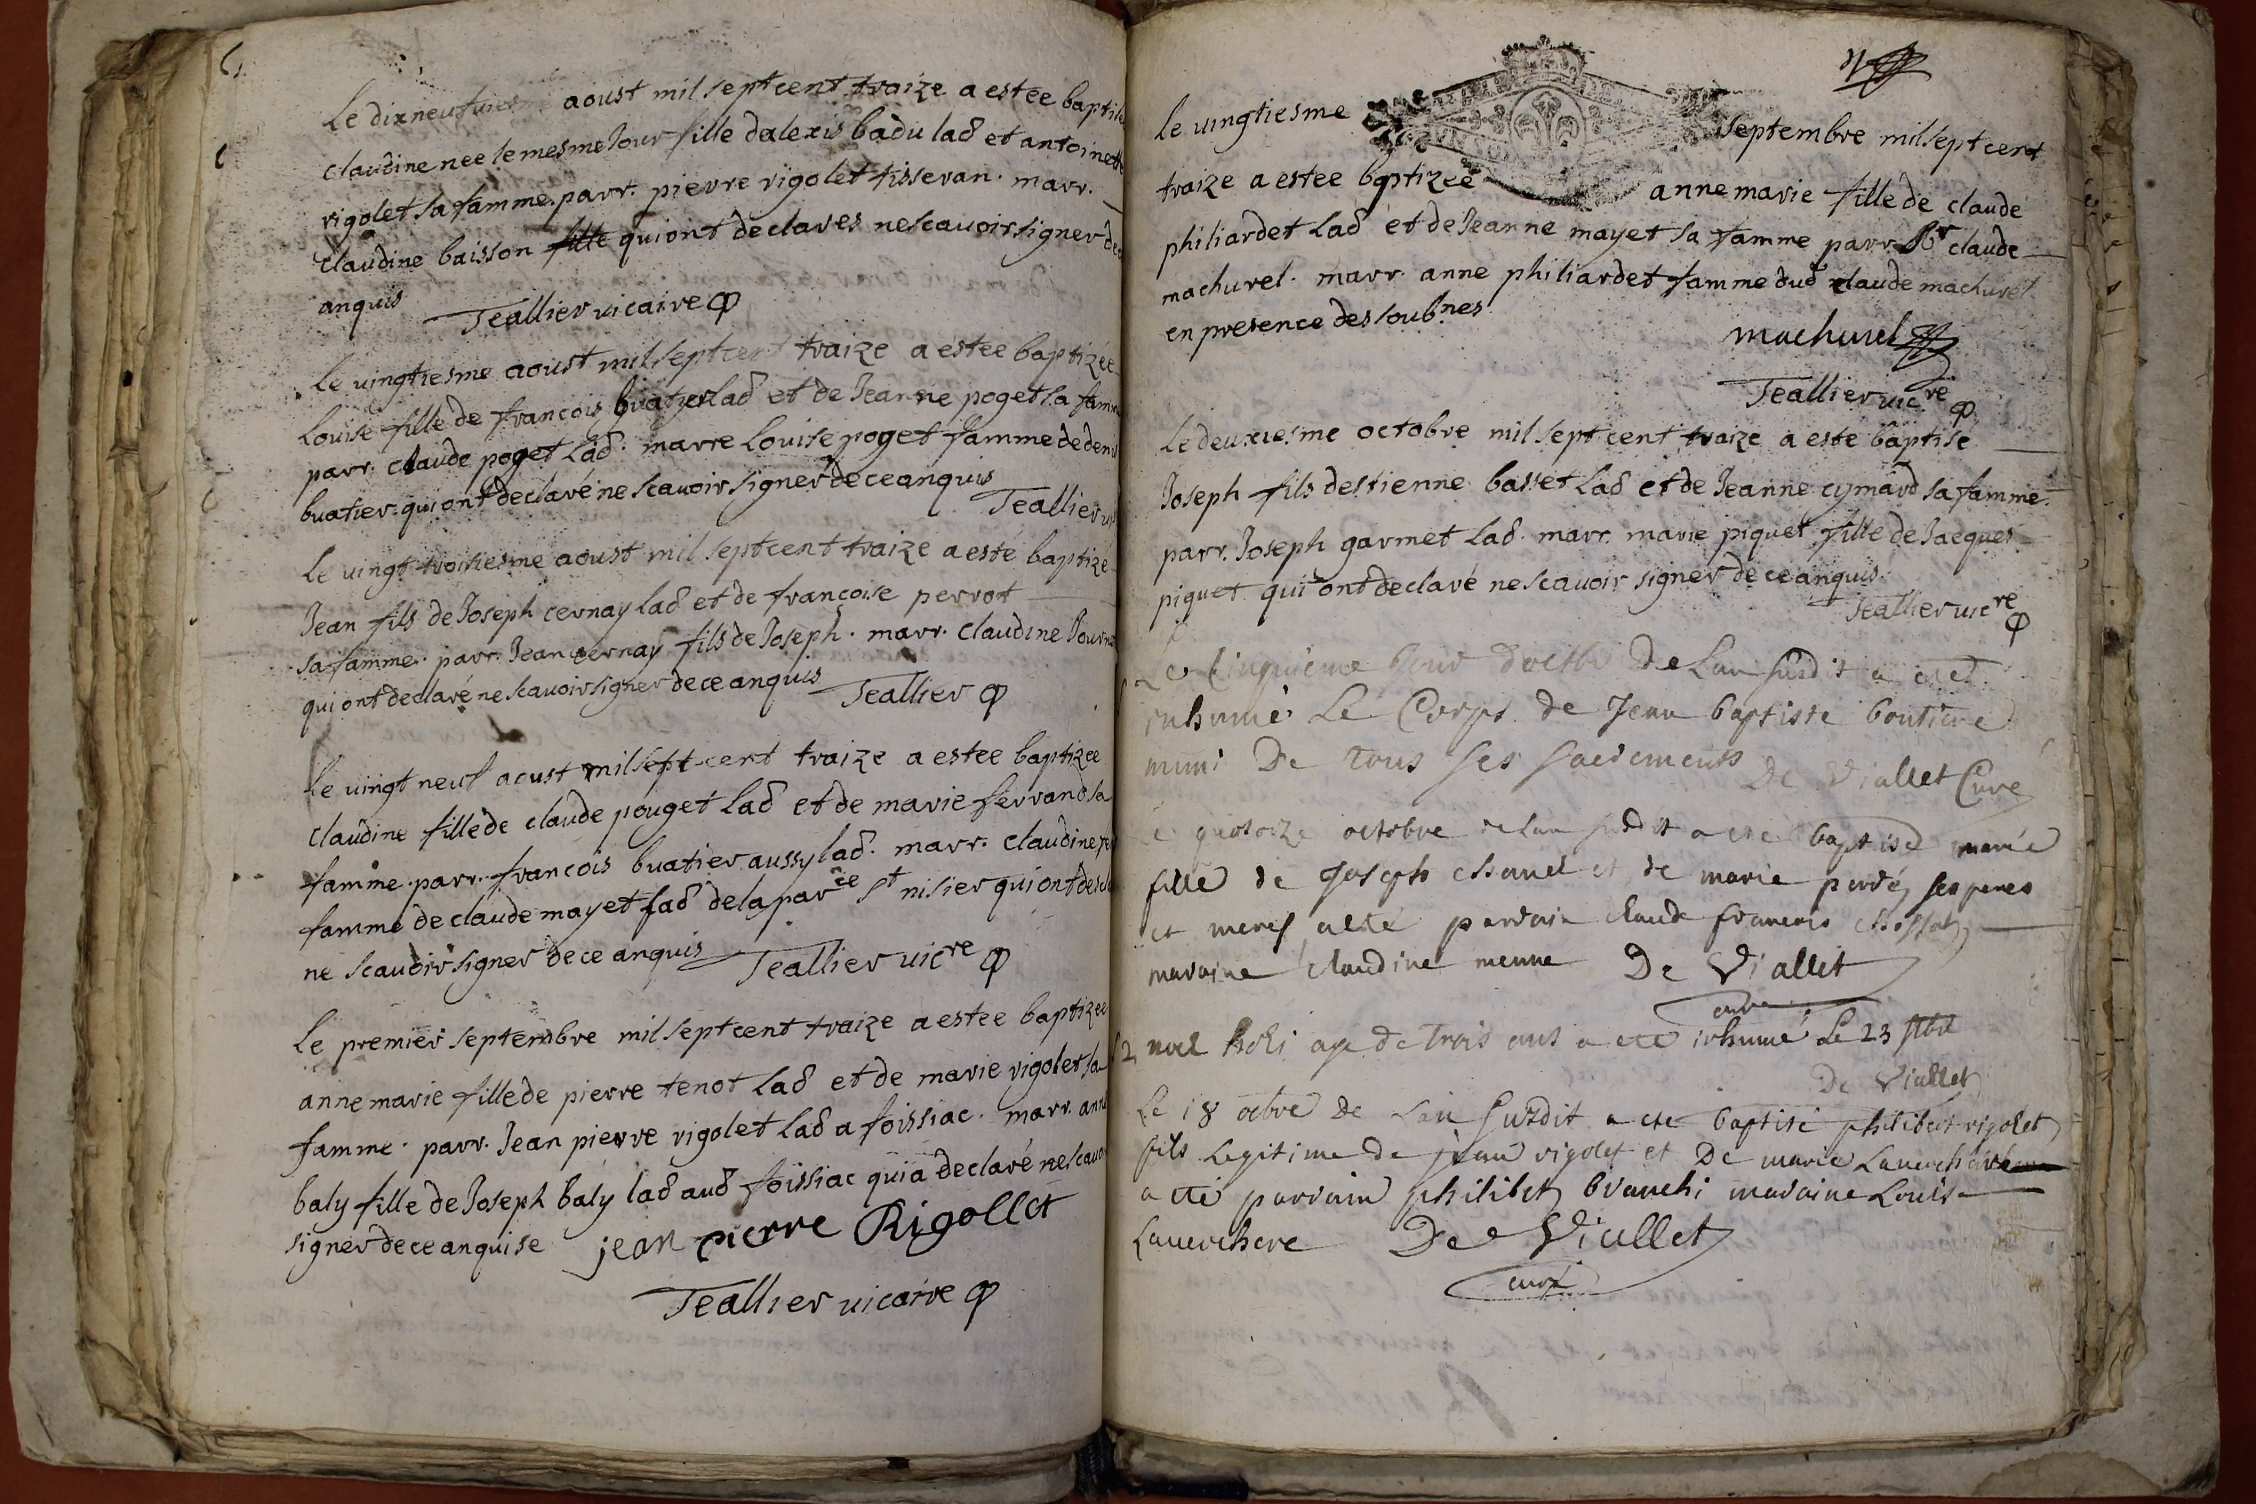 Le dixneufviesme aoust mil sept cent traize a estee baptisee
claudine nee le mesme Jour fille dalexis badu lad et antoinette
rigolet sa famme. parr. pierre rigolet tisseran. marr.
claudine baisson fille qui ont declares ne scavoir signer de ce
anquis
Teallier vicaire
Le vingtiesme aoust mil sept cent traize a estee baptizée
Louise fille de francois buatier lad et de Jeanne poget sa famme
parr. claude poget lad. marre Louise poget famme de denis
buatier. qui ont declaré ne scavoir signer de ce anquis
Teallier
Le vingt troisiesme aoust mil sept cent traize a esté baptizé
Jean fils de Joseph cernay lad et de francoise perrot
sa famme. parr. Jean cernay fils de Joseph. marr. claudine
qui ont declaré ne scavoir signer de ce anquis Teallier
Le vingt neuf aoust mil sept cent traize a estee baptizee
claudine fille de claude pouget lad et de marie ferrand sa
famme. parr. francois buatier aussy lad. marr. claudine
famme de claude mayet lad de la parce st nisier qui ont
ne scavoir signer de ce anquis Teallier vicre
Le premier septembre mil sept cent traize a estee baptizee
anne marie fille de pierre tenot lad et de marie rigolet sa
famme. parr. Jean pierre rigolet lad a foissiac. marr. anne
baly fille de Joseph baly lad aud foissiac qui a declaré ne scavoir
signer de ce anquise jean pierre Rigollet
Teallier vicaire
le vingtiesme septembre mil sept cent
traize a estee baptizée anne marie fille de claude
philiardet Lad et de Jeanne mayet sa famme parr. Sr claude
machurel. marr. anne philiardet famme dud claude machurel
en presence des soubnes
machurel
Teallier vicre
Le deuxiesme octobre mil sept cent traize a esté baptisé
Joseph fils destienne basset Lad et de Jeanne cymard sa famme.
parr. Joseph garmet Lad. marr. marie piquet fille de Jacques
piquet qui ont declaré ne scavoir signer de ce anquis.
Teallier vicre
Le Cinquieme Jour de Lan susdit a eté
inhumé Le Corps de Jean baptiste boutiere
muni De tous ses sacrements De Viallet Curé
quatorze octobre de lan susdit a eté baptisé marie
fille de Joseph et de marie ses peres
et meres a eté parrain claude francois
maraine claudine De Viallet
curé
agé de trois ans a eté inhumé Le 23
De Viallet
Le 18 octbre De Lan susdit a eté baptisé philibert rigolet
fils Legitime de jean rigolet et De marie
a eté parrain philibert maraine Louise
Laverchere De Viallet
curé